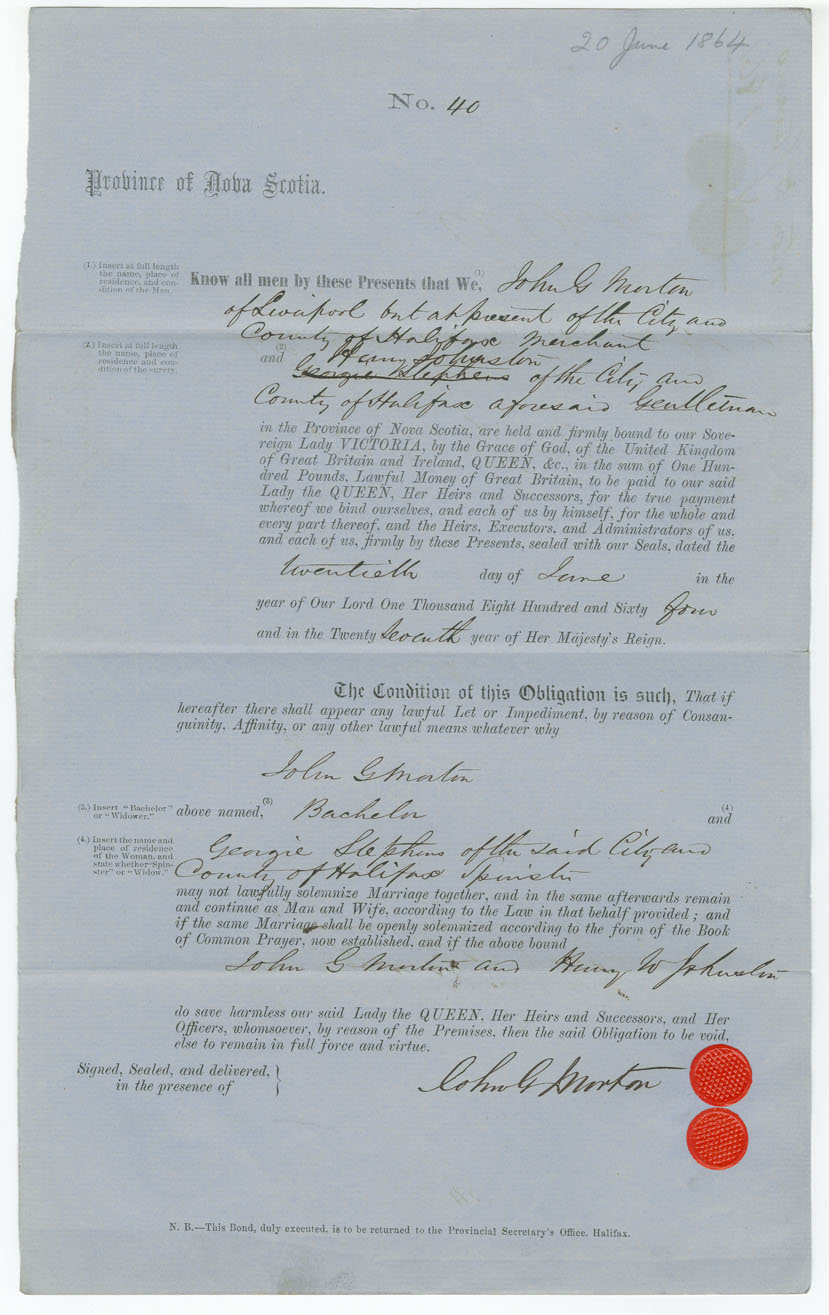 20 June 1864
No. 40
Province of Nova Scotia.
(1.) Insert at full length
the name, place of
residence, and con-
dition of the Man.
Know all men by these Presents that We, (1) John G Morton
of Liverpool but at present of the City and
County of Halifax Merchant
(2.) Insert at full length
the name, place of
residence and con-
dition of the surety.
and (2) Henry Johnston
Georgie Stephens of the City and
County of Halifax aforesaid Gentleman
in the Province of Nova Scotia, are held and firmly bound to our Sove-
reign Lady VICTORIA, by the Grace of God, of the United Kingdom
of Great Britain and Ireland, QUEEN, &c., in the sum of One Hun-
dred Pounds, Lawful Money of Great Britain, to be paid to our said
Lady the QUEEN, Her Heirs and Successors, for the true payment
whereof we bind ourselves, and each of us by himself, for the whole and
every part thereof, and the Heirs, Executors, and Administrators of us,
and each of us, firmly by these Presents, sealed with our Seals, dated the
twentieth day of June in the
year of Our Lord One Thousand Eight Hundred and Sixty four
and in the Twenty Seventh year of Her Majesty's Reign.
The Condition of this Obligation is such, That if
hereafter there shall appear any lawful Let or Impediment, by reason of Consan-
guinity, Affinity, or any other lawful means whatever why
John G Morton
(3.) Insert "Bachelor"
or "Widower."
above named, (3) Bachelor (4) and
(4.) Insert the name and
place of residence
of the Woman, and
state whether "Spin-
ster" or "Widow."
Georgie Stephens of the said City and
County of Halifax Spinster
may not lawfully solemnize Marriage together, and in the same afterwards remain
and continue as Man and Wife, according to the Law in that behalf provided; and
if the same Marriage shall be openly solemnized according to the form of the Book
of Common Prayer, now established, and if the above bound
John G Morton and Henry W Johnston
do save harmless our said Lady the QUEEN, Her Heirs and Successors, and Her
Officers, whomsoever, by reason of the Premises, then the said Obligation to be void,
else to remain in full force and virtue.
Signed, Sealed, and delivered,
in the presence of
John G Morton
N. B.—This Bond, duly executed, is to be returned to the Provincial Secretary's Office, Halifax.